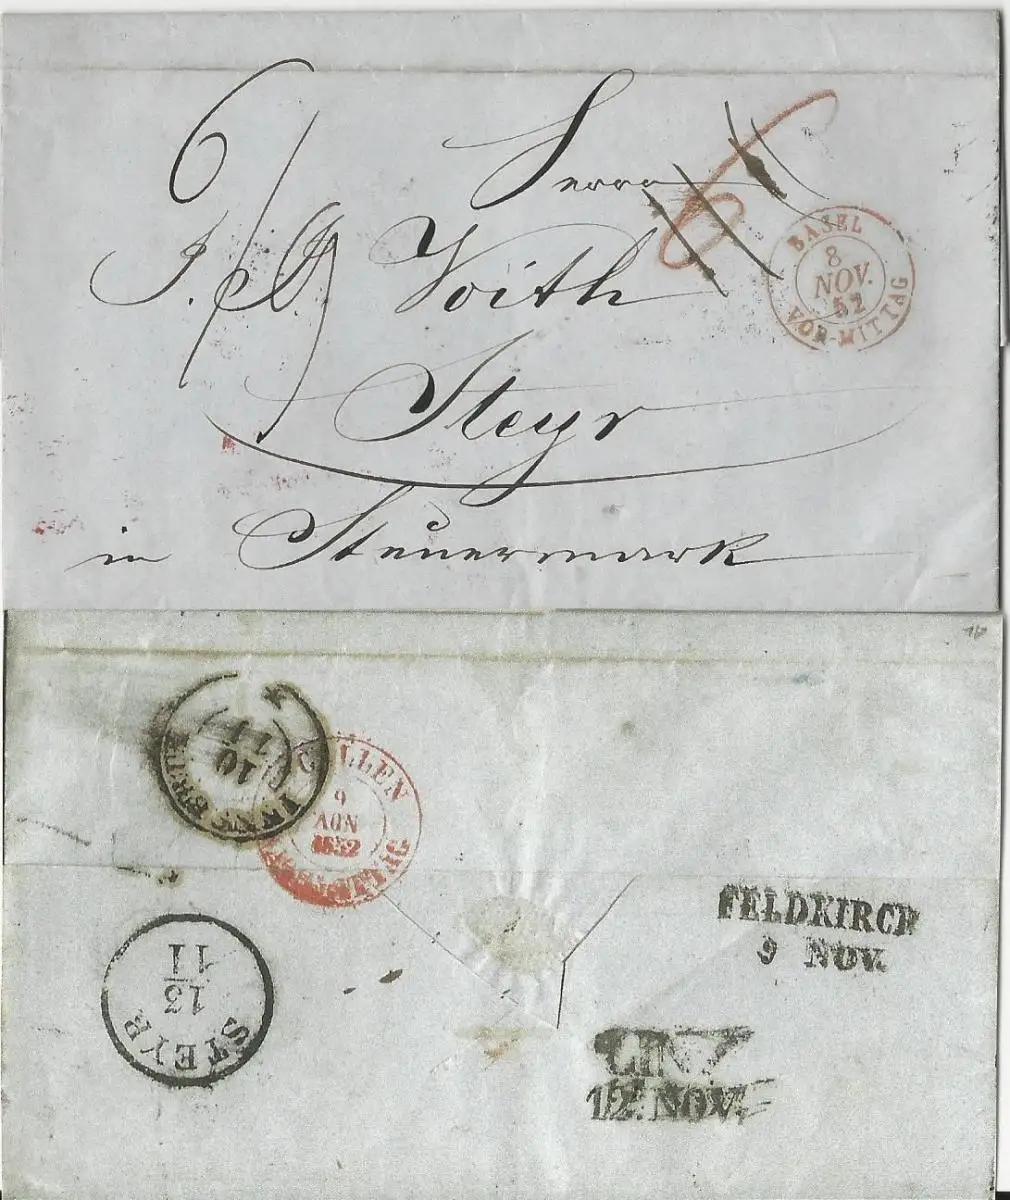 6
Herrn
J. M. Voith
Steyr
in Steuermark
6
BASEL
8
NOV.
52
VOR-MITTAG
INNSBRUCK
10
11
ST. GALLEN
9
NOV
1852
FELDKIRCH
9 NOV.
STEYR
13
11
LINZ
12. NOV.